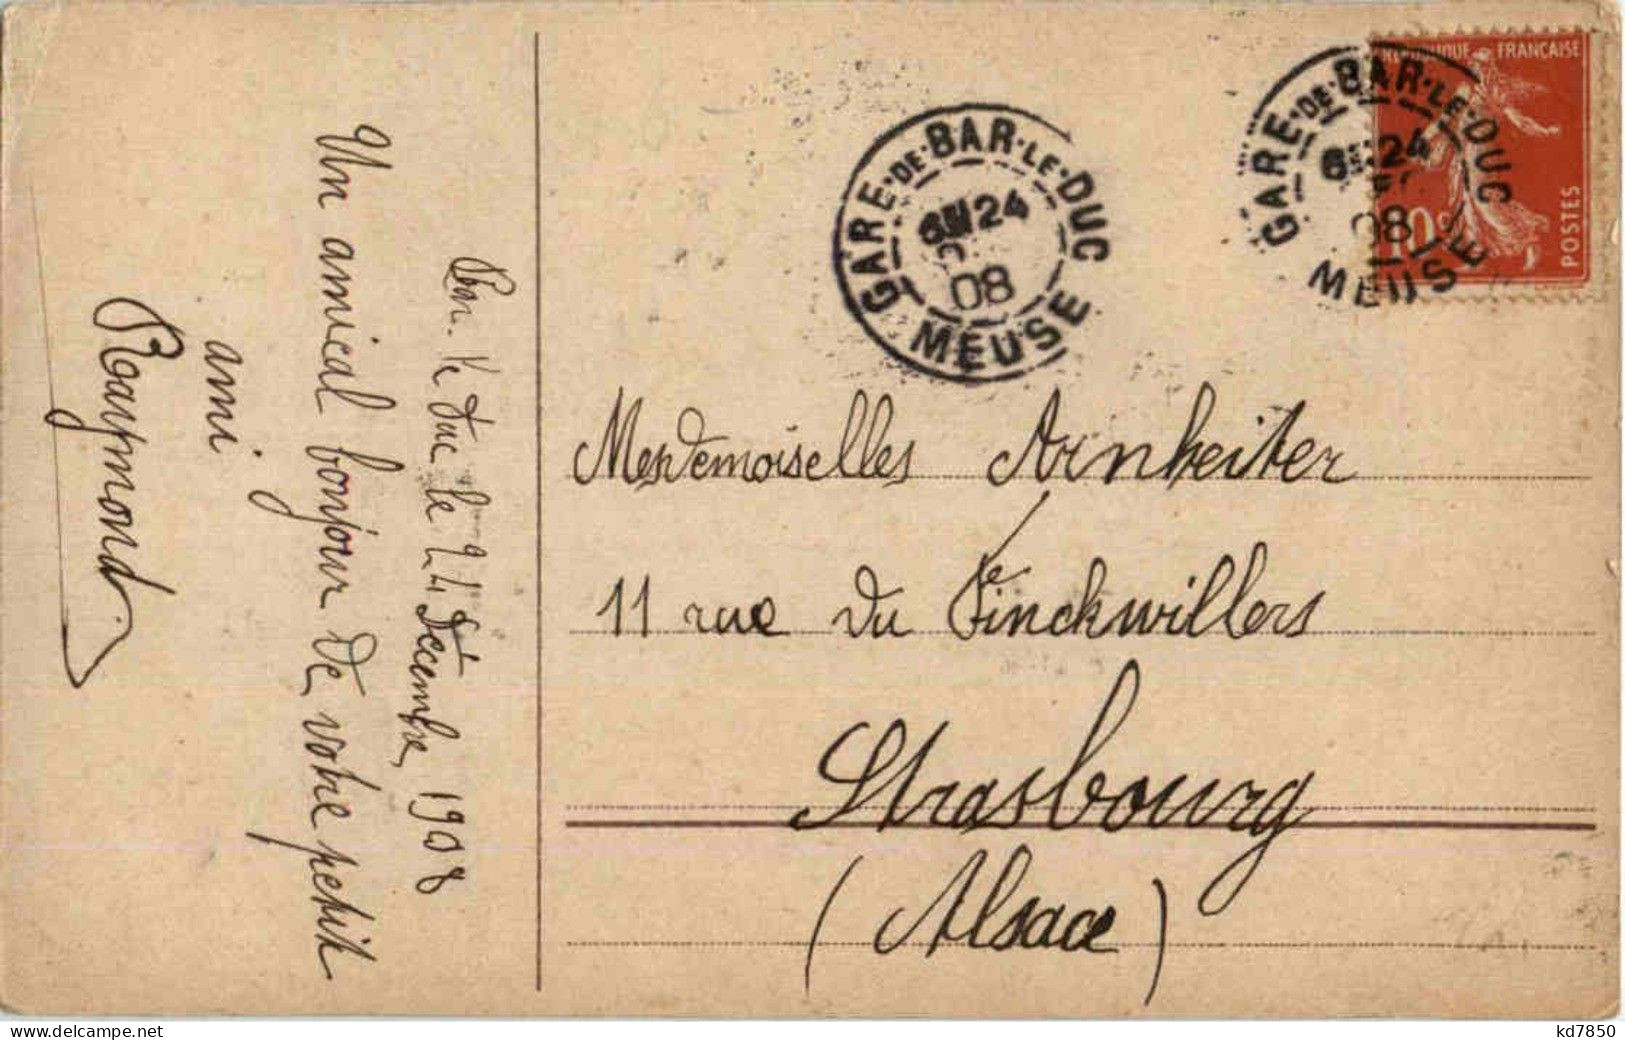 Bar-le-Duc le 24 Décembre 1908
Un amical bonjour de votre petit
ami
Raymond
GARE-DE-BAR-LE-DUC
24
08
MEUSE
GARE-DE-BAR-LE-DUC
24
08
MEUSE
REPUBLIQUE FRANCAISE
10c
POSTES
Mesdemoiselles Arnheiter
11 rue du Finckwillers
Strasbourg
(Alsace)
www.delcampe.net
kd7850